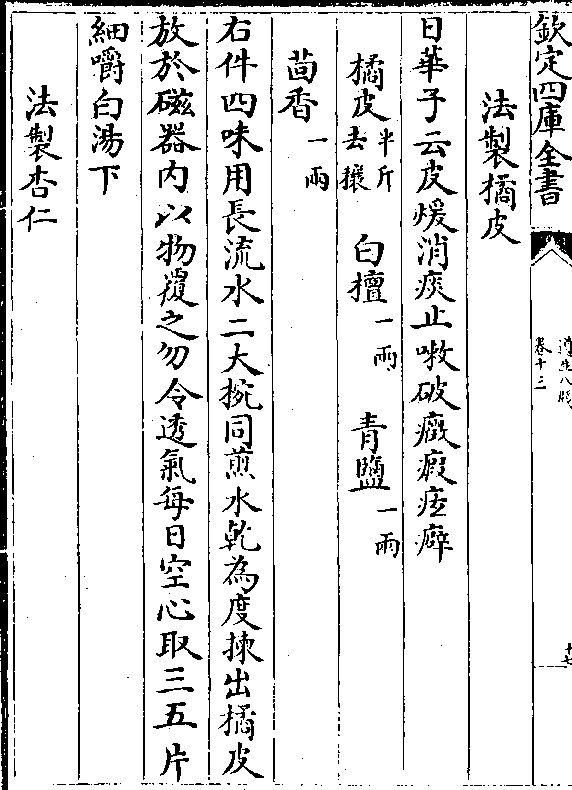 欽定四庫全書
遵生八牋
卷十三
十七
法製橘皮
日華子云皮煖消痰止嗽破癥瘕痃癖
橘皮半斤去穰 白檀一兩 青鹽一兩
茴香一兩
右件四味用長流水二大椀同煎水乾為度揀出橘皮
放於磁器內以物覆之勿令透氣每日空心取三五片
細嚼白湯下
法製杏仁